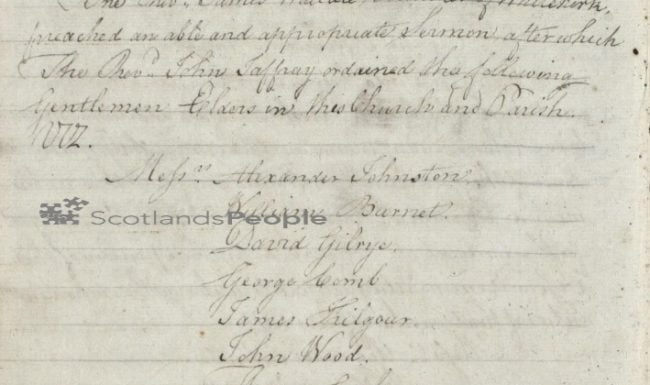 The Revd. James Wallace, of Whitekirk,
preached an able and appropriate Sermon, after which
The Revd. John Jaffray ordained the following
Gentlemen Elders in this Church and Parish.
Vizt.
Messrs. Alexander Johnston.
William Burnet.
ScotlandsPeople
David Gilrye.
George Comb
James Kilgour.
John Wood.